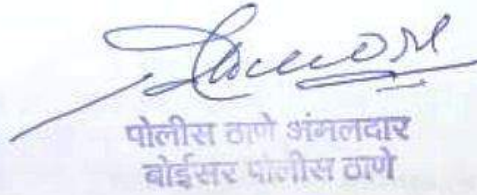 पोलीस ठाणे अंमलदार
बोईसर पोलीस ठाणे